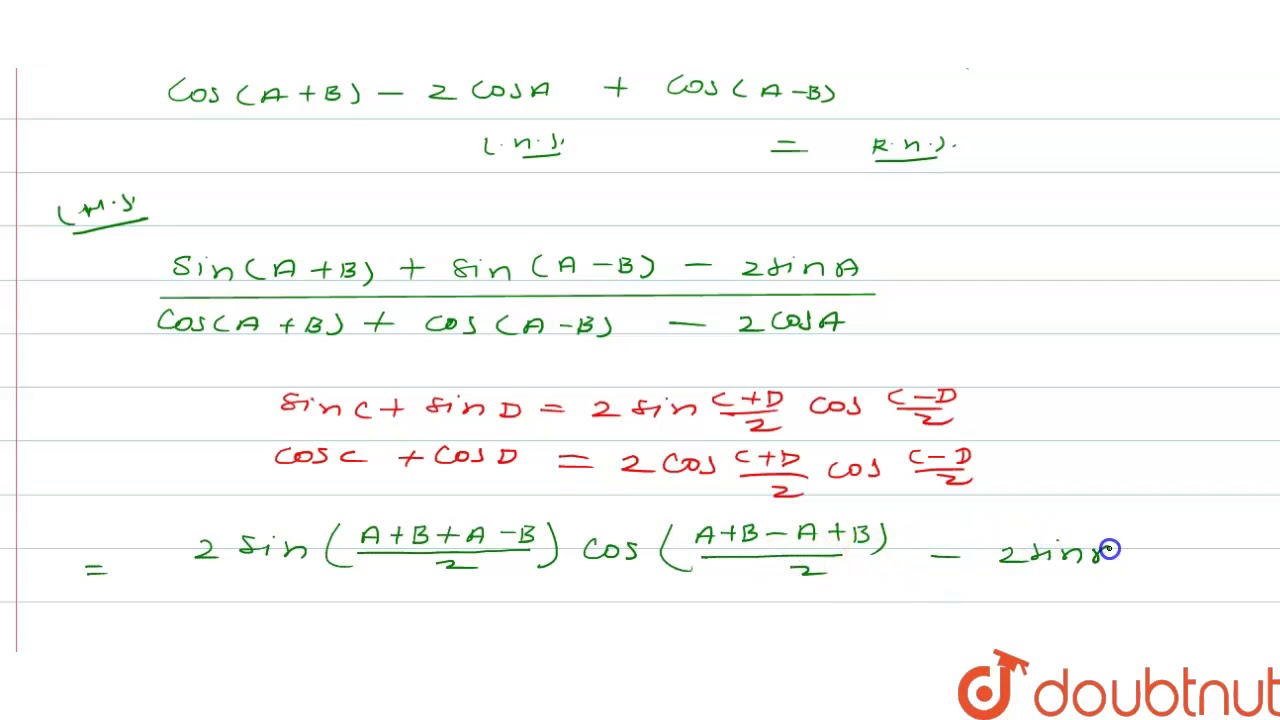 cos(A+B) - 2 cosA + cos(A-B)
L.H.S. = R.H.S.
L.H.S.
sin(A+B) + sin(A-B) - 2sinA
cos(A+B) + cos(A-B) - 2cosA
sinC + sinD = 2 sin C+D/2 cos C-D/2
cosC + cosD = 2 cos C+D/2 cos C-D/2
= 2 sin(A+B+A-B/2) cos(A+B-A+B/2) - 2sin
doubtnut